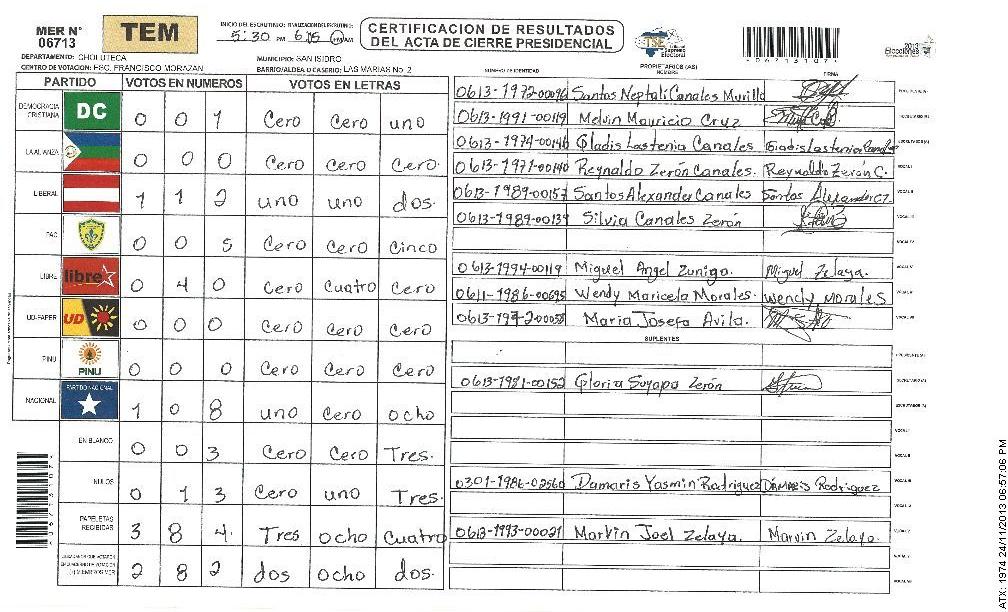 MER N° 06713
TEM
INICIO DEL ESCRUTINIO: FINALIZACION DEL ESCRUTINIO:
5:30 PM 6:05 AM
CERTIFICACION DE RESULTADOS
DEL ACTA DE CIERRE PRESIDENCIAL
TSE Tribunal Supremo Electoral
06713107
2013 Elecciones
DEPARTAMENTO: CHOLUTECA
MUNICIPIO: SAN ISIDRO
CENTRO DE VOTACION: ESC. FRANCISCO MORAZAN
BARRIO/ALDEA O CASERIO: LAS MARIAS No. 2
NUMERO DE IDENTIDAD PROPIETARIOS (AS) NOMBRE FIRMA
PARTIDO VOTOS EN NUMEROS VOTOS EN LETRAS
DEMOCRACIA CRISTIANA DC 0 0 1 Cero Cero uno
LA ALIANZA 0 0 0 Cero Cero Cero.
LIBERAL 1 1 2 uno uno dos.
PAC 0 0 5 Cero Cero Cinco
LIBRE libre 0 4 0 Cero Cuatro Cero
UD-FAPER UD 0 0 0 Cero Cero Cero
PINU PINU 0 0 0 Cero Cero Cero
NACIONAL PARTIDO NACIONAL 1 0 8 uno Cero ocho
EN BLANCO 0 0 3 Cero Cero Tres.
NULOS 0 1 3 Cero uno Tres.
PAPELETAS RECIBIDAS 3 8 4. Tres ocho Cuatro
2 8 2 dos ocho dos.
0613-1972-00096 Santos Neptali Canales Murillo
0613-1991-00119 Melvin Mauricio Cruz
0613-1974-00146 Gladis Lastenia Canales Gladis Lastenia Canales
0613-1971-00140 Reynaldo Zerón Canales. Reynaldo Zerón C.
0613-1989-00157 Santos Alexander Canales Santos Alexander CZ.
0613-1989-00139 Silvia Canales Zerón
0613-1994-00119 Miguel Angel Zuniga. Miguel Zelaya.
0611-1986-00695 Wendy Maricela Morales. Wendy Morales
0613-1972-00058 Maria Josefa Avila.
SUPLENTES
0613-1981-00152 Gloria Suyapa Zerón
0301-1986-02560 Damaris Yasmin Rodriguez Damaris Rodriguez
0613-1993-00021 Marvin Joel Zelaya. Marvin Zelaya
ATX: 1974 24/11/2013 06:57:06 PM